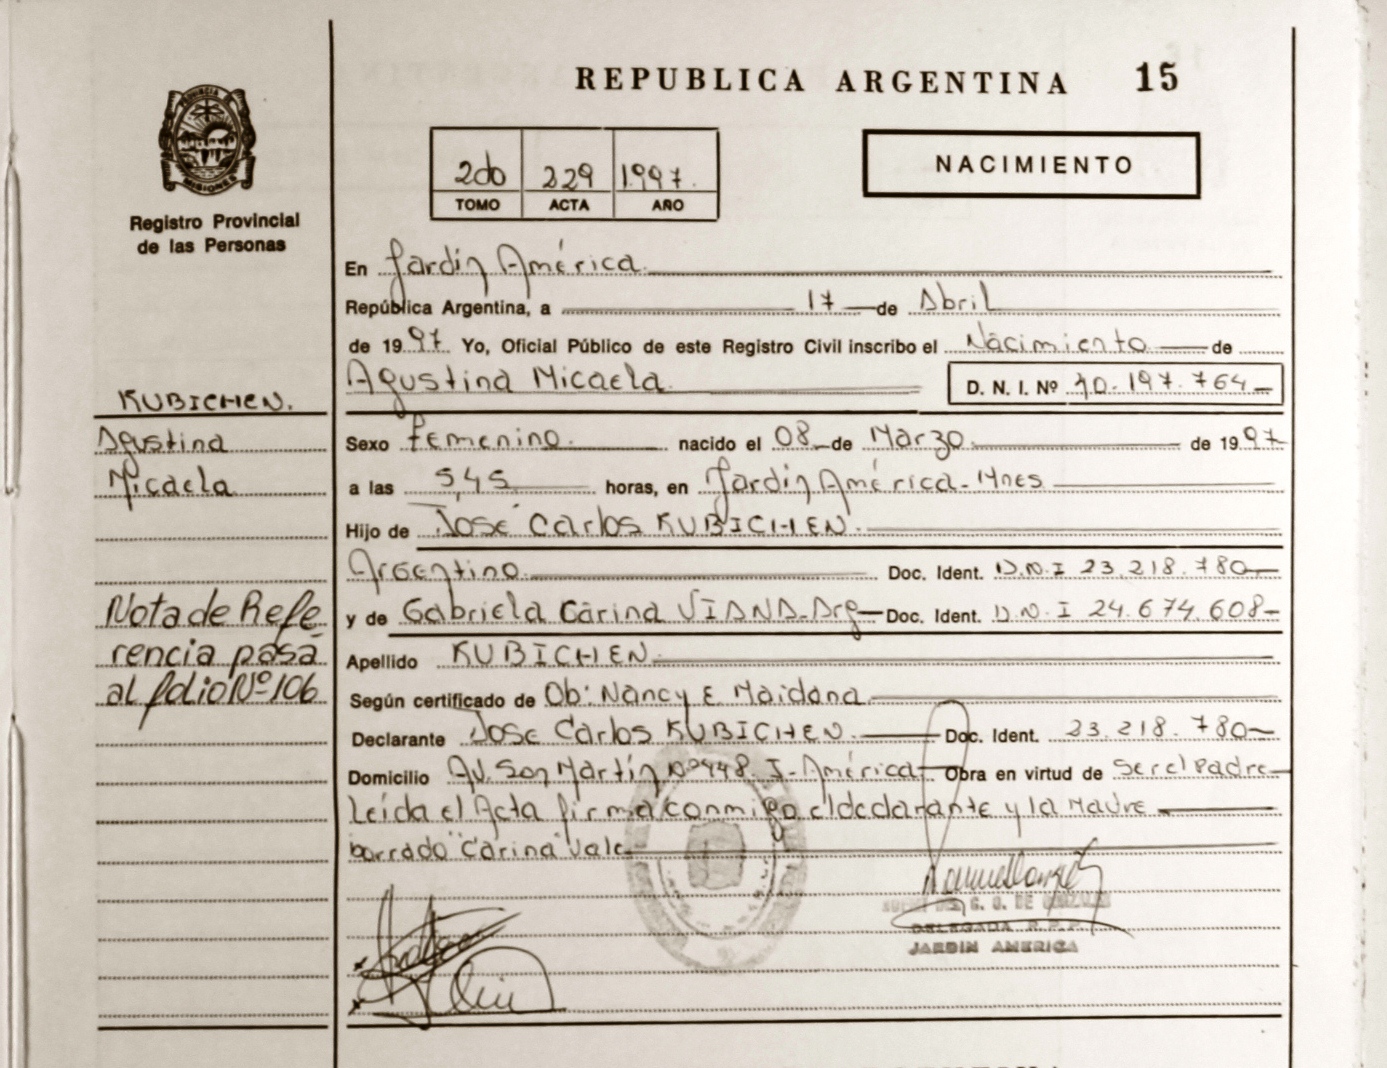 REPUBLICA ARGENTINA 15
PROVINCIA DE
MISIONES
Registro Provincial
de las Personas
2do 229 1997.
TOMO ACTA AÑO
NACIMIENTO
En Jardín América.
República Argentina, a 17 de Abril
de 1997 Yo, Oficial Público de este Registro Civil inscribo el Nacimiento de
Agustina Micaela. D. N. I. Nº 40.197.764
KUBICHEN.
Agustina
Micaela
Sexo femenino. nacido el 08 de Marzo. de 1997
a las 5,45 horas, en Jardín América-Mnes
Hijo de José Carlos KUBICHEN.
Argentino. Doc. Ident. D.N.I 23.218.780
y de Gabriela Carina VIANA-Arg Doc. Ident. D.N.I 24.674.608
Nota de Refe
rencia pasa
al folio Nº 106
Apellido KUBICHEN
Según certificado de Ob: Nancy E. Maidana
Declarante José Carlos KUBICHEN. Doc. Ident. 23.218.780
Domicilio Av. San Martín Nº 948. J-América Obra en virtud de ser el Padre
Leída el Acta firma conmigo el declarante y la Madre
borrado "Carina" Vale
G. O. DE
DELEGADA R.P.P.
JARDIN AMERICA